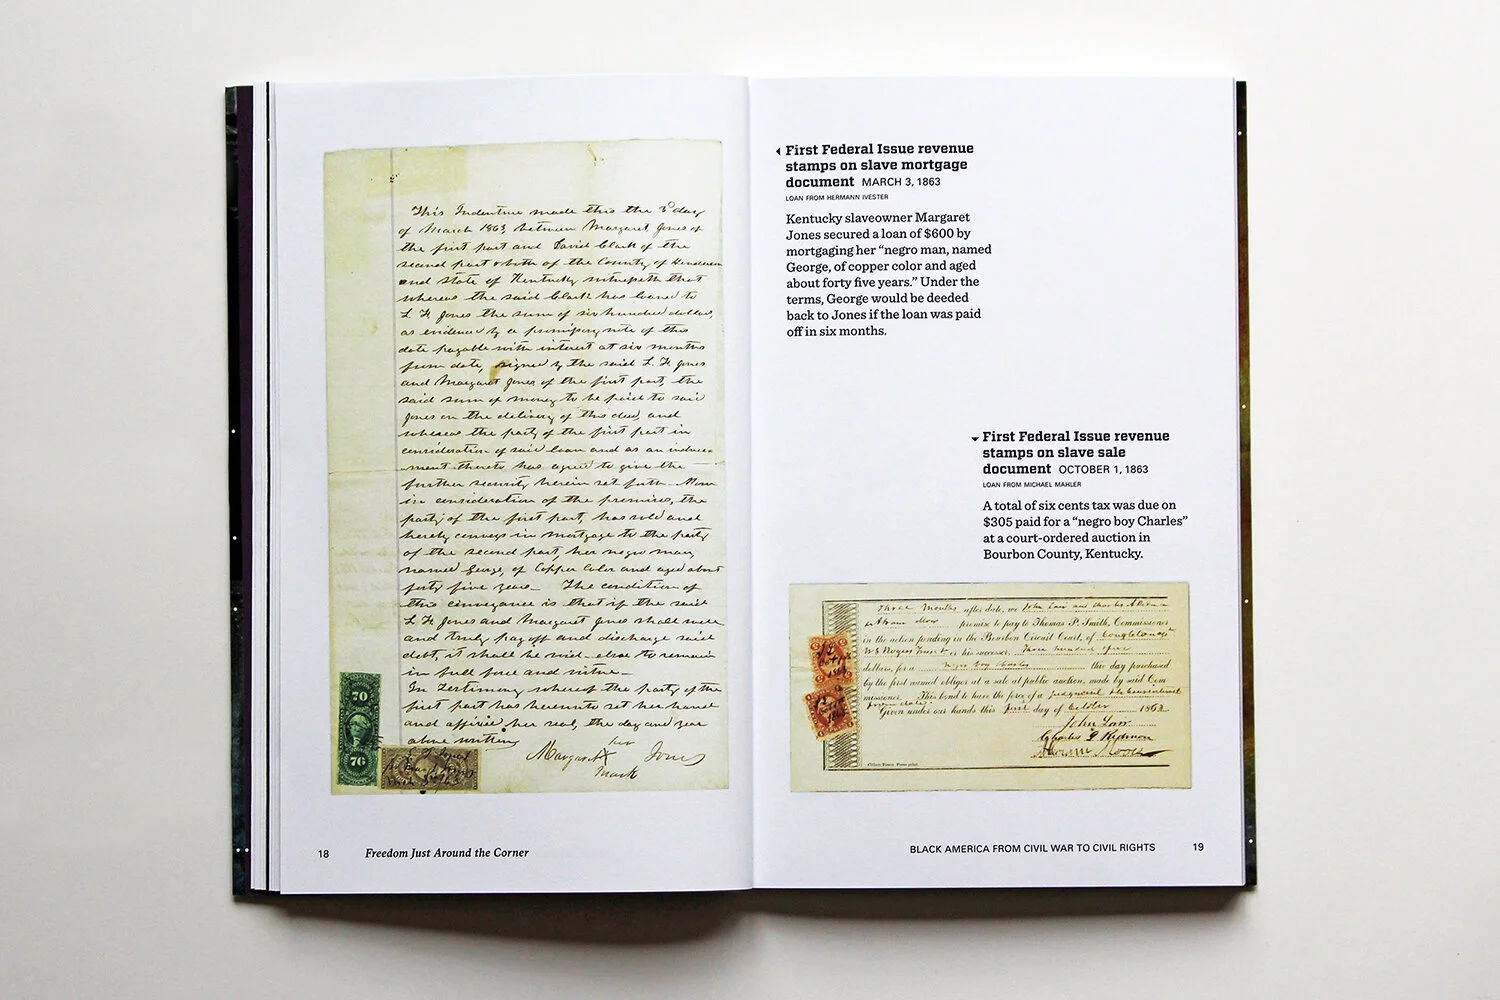 This Indenture made this the 3d day
of March 1863, between Margaret Jones of
the first part and David Clark of the
second part & both of the County of Henderson
and state of Kentucky witnesseth that
whereas the said Clark has loaned to
L F Jones the sum of six hundred dollars,
as evidenced by a promissory note of this
date payable with interest at six months
from date, signed by the said L. F. Jones
and Margaret Jones of the first part, the
said sum of money to be paid to said
Jones on the delivery of this deed, and
whereas the party of the first part in
consideration of said loan and as an induce-
ment thereto has agreed to give the
further security herein set forth. Now
in consideration of the premises, the
party of the first part, has sold and
hereby conveys in mortgage to the party
of the second part, her negro man,
named George, of Copper Color and aged about
forty five years. The condition of
this conveyance is that if the said
L F Jones and Margaret Jones shall well
and truly pay off and discharge said
debt, it shall be void-else to remain
in full force and virtue-
In Testimony whereof the party of the
first part has hereunto set her hand
and affixed her seal, the day and year
above written
Margaret her Jones
mark
70
76
18 Freedom Just Around the Corner
First Federal Issue revenue
stamps on slave mortgage
document MARCH 3, 1863
LOAN FROM HERMANN IVESTER
Kentucky slaveowner Margaret
Jones secured a loan of $600 by
mortgaging her “negro man, named
George, of copper color and aged
about forty five years.” Under the
terms, George would be deeded
back to Jones if the loan was paid
off in six months.
First Federal Issue revenue
stamps on slave sale
document OCTOBER 1, 1863
LOAN FROM MICHAEL MAHLER
A total of six cents tax was due on
$305 paid for a “negro boy Charles”
at a court-ordered auction in
Bourbon County, Kentucky.
Three Months after date, we John Law and Charles
promise to pay to Thomas P. Smith, Commissioner
in the action pending in the Bourbon Circuit Court, of
or his successor, Three hundred five
dollars, for a negro boy Charles this day purchased
by the first named obligor at a sale at public auction, made by said Com
missioner. This bond to have the force of a judgment
from date.
Given under our hands this first day of October 1863
John Law
Charles
BLACK AMERICA FROM CIVIL WAR TO CIVIL RIGHTS 19